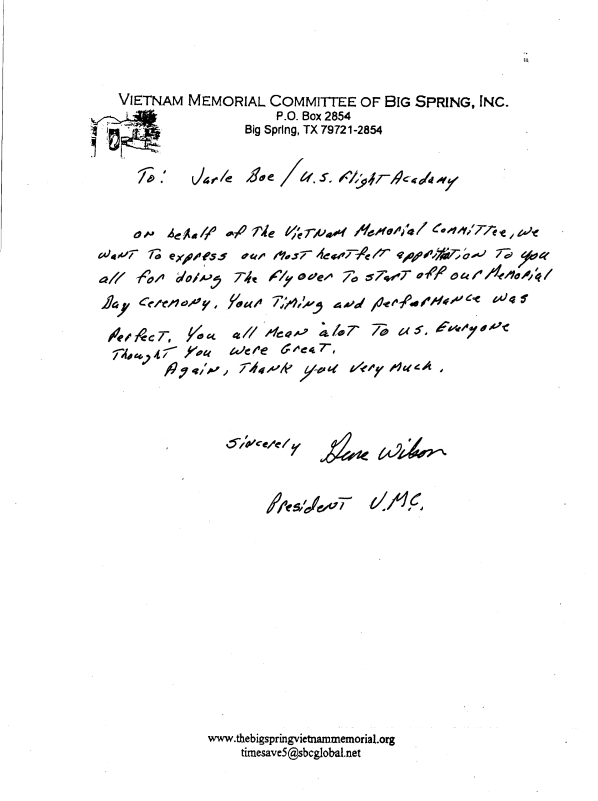 VIETNAM MEMORIAL COMMITTEE OF BIG SPRING, INC.
P.O. Box 2854
Big Spring, TX 79721-2854
To: Jarle Boe / U.S. Flight Academy
on behalf of The Vietnam Memorial Committee, we
want To express our most heartfelt appritiation To you
all for doing The fly over To start off our Memorial
Day Ceremony. Your Timing and performance was
Perfect. You all mean alot To us. Everyone
Thought You were Great.
Again, Thank you very much.
Sincerely Gene Wilson
President V.M.C.
www.thebigspringvietnammemorial.org
timesave5@sbcglobal.net